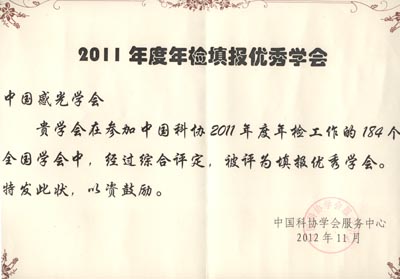 2011年度年检填报优秀学会
中国感光学会
贵学会在参加中国科协2011年度年检工作的184个
全国学会中，经过综合评定，被评为填报优秀学会。
特发此状，以资鼓励。
中国科协学会服务中心
2012年11月